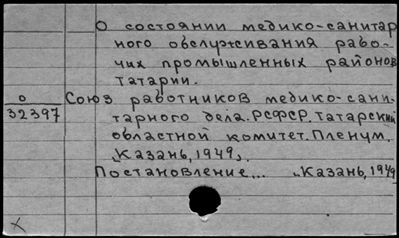 О состоянии медико-санитар
ного обслуживания рабо-
чих промышленных районов
Татарии.
О
32397
Союз работников медико-сани-
тарного дела. РСФСР. Татарский
областной комитет. Пленум.
„Казань, 1949„.
Постановление... „Казань, 1949
X